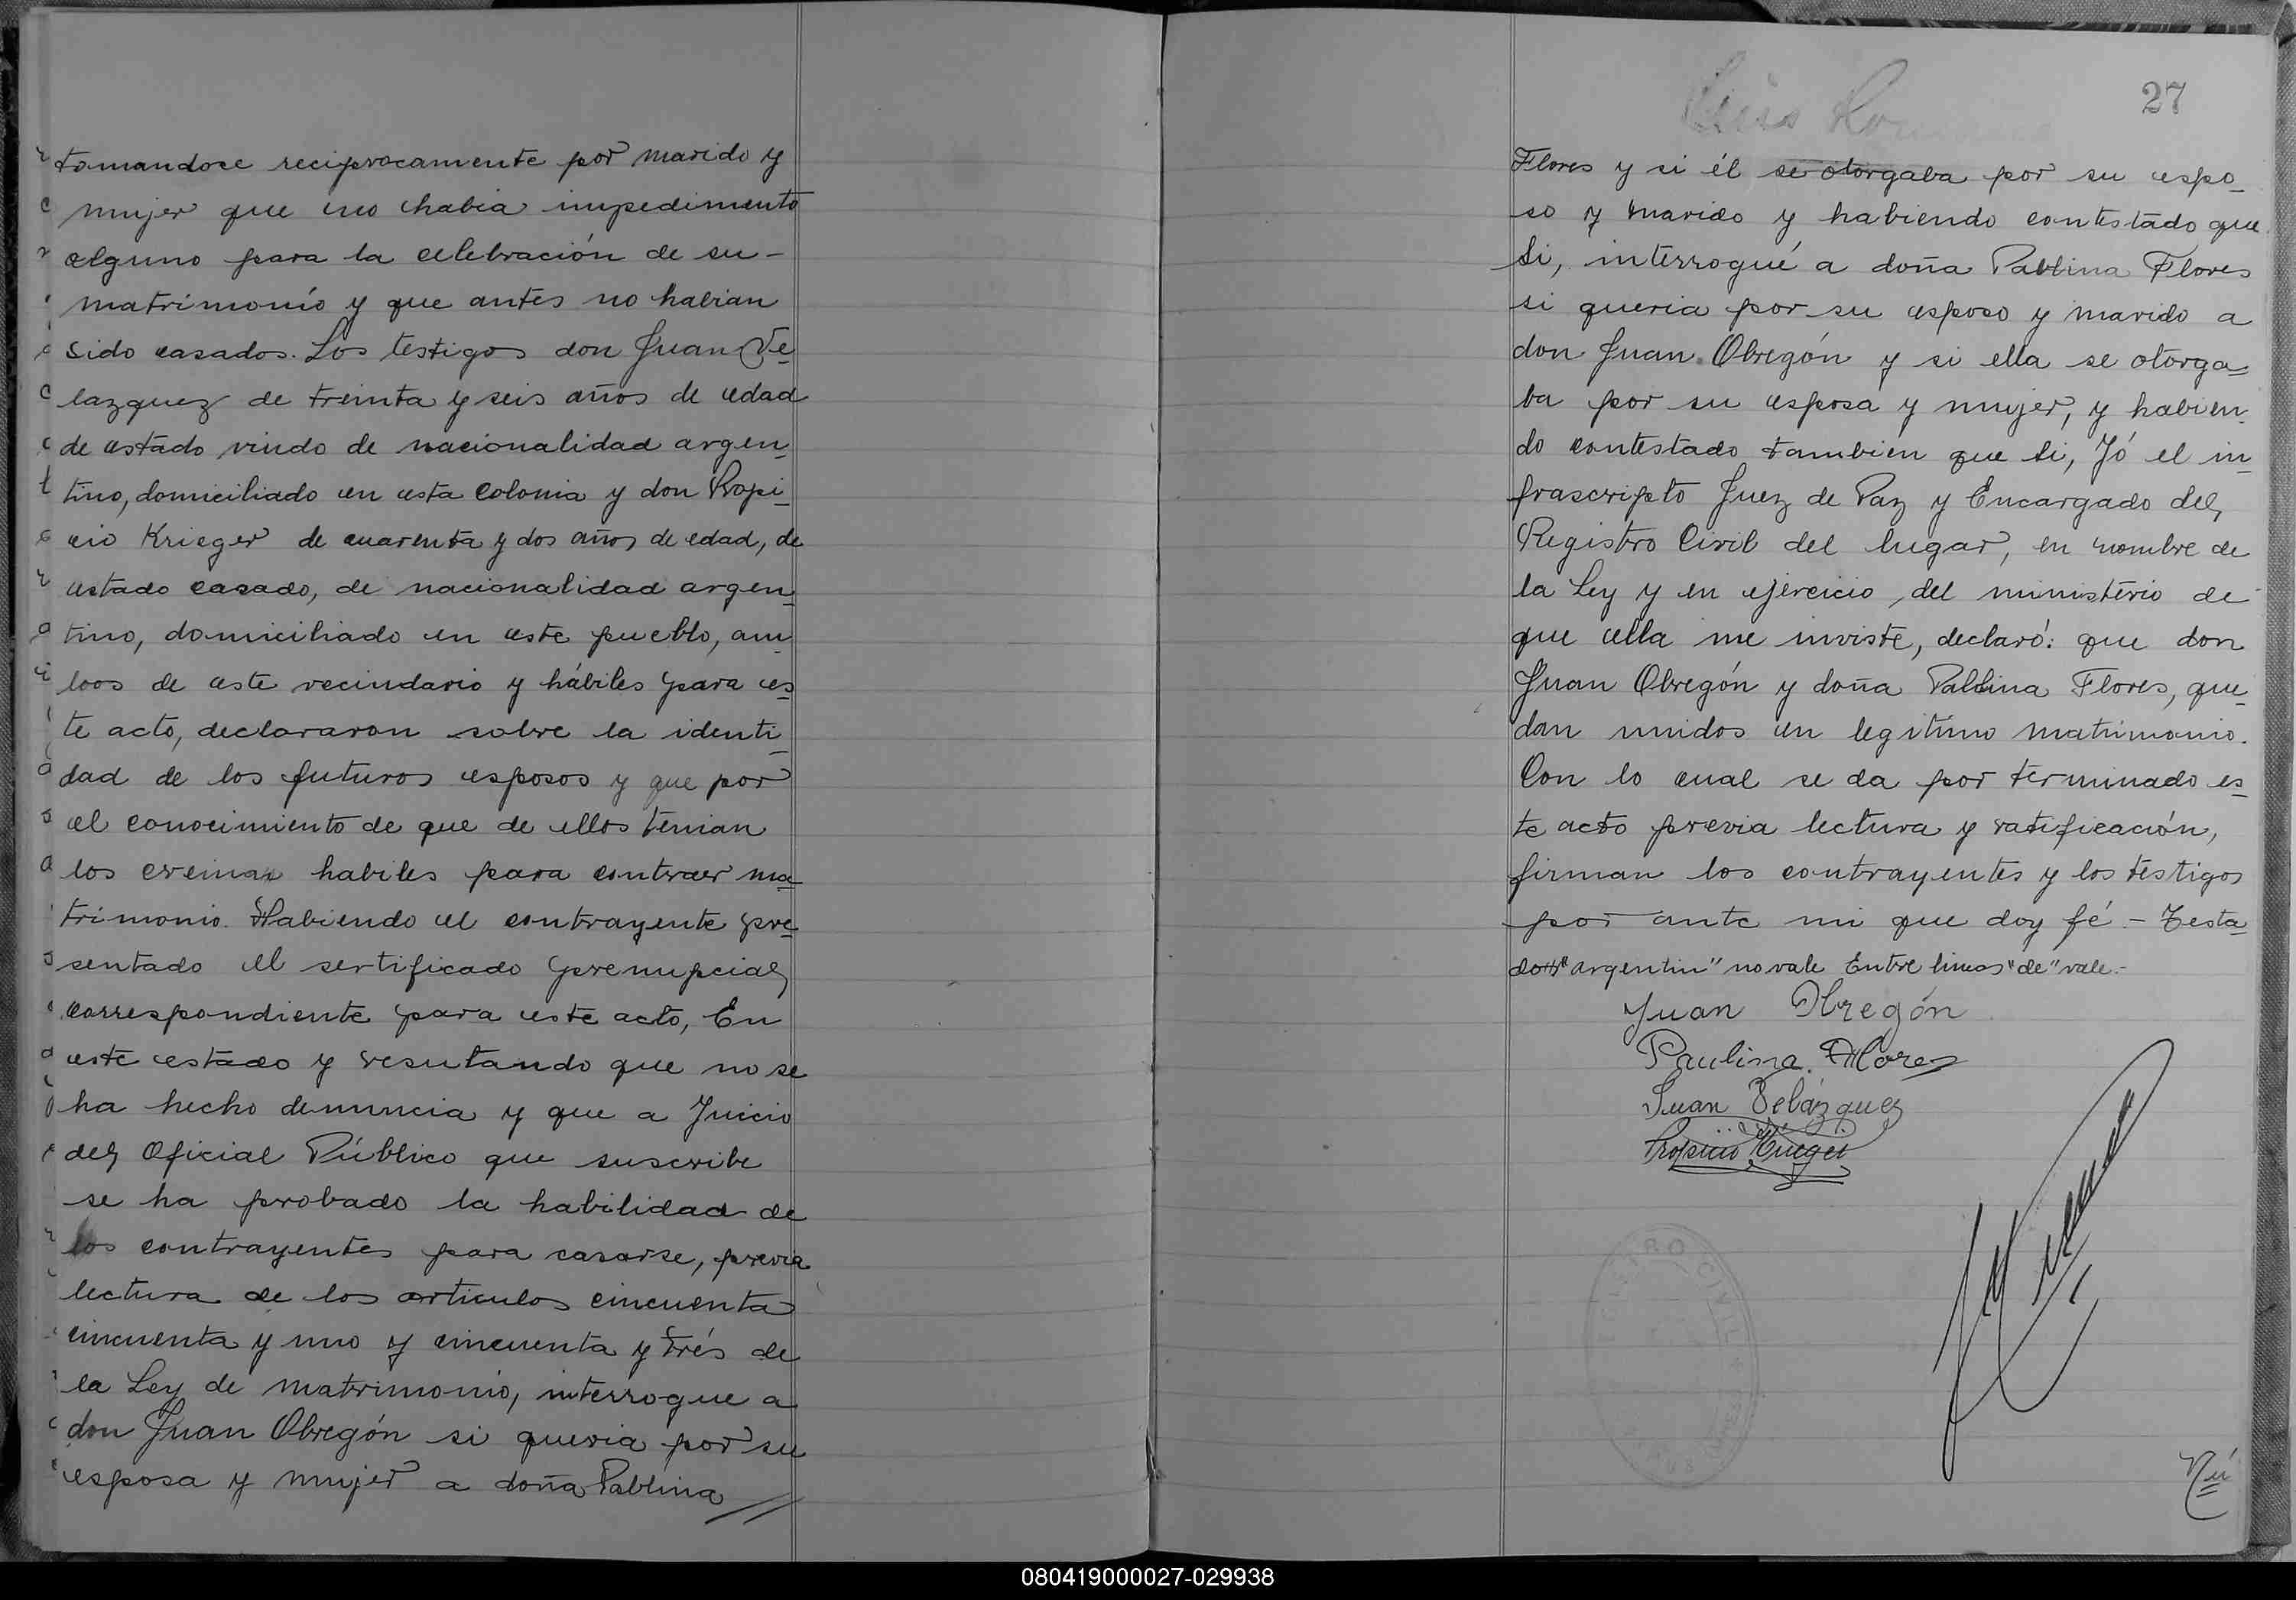 tomandose reciprocamente por marido y
mujer que no habia impedimento
alguno para la celebración de su-
matrimonio y que antes no habian
sido casados. Los testigos don Juan Ve
lazquez de treinta y seis años de edad
de estado viudo de nacionalidad argen
tino, domiciliado en esta colonia y don Propi
cio Krieger de cuarenta y dos años de edad, de
estado casado, de nacionalidad argen
tino, domiciliado en este pueblo, am
boos de este vecindario y hábiles para es
te acto, declararon sobre la identi
dad de los futuros esposos y que por
el conocimiento de que de ellos tenian
los creian habiles para contraer ma
trimonio. Habiendo el contrayente pre
sentado el sertificado prenupcial
correspondiente para este acto, En
este estado y resutando que no se
ha hecho denuncia y que a Juicio
del Oficial Público que suscribe
se ha probado la habilidad de
los contrayentes para casarse, previa
lectura de los articulos cincuenta
cincuenta y uno y cincuenta y trés de
la Ley de matrimonio, interrogue a
don Juan Obregón si queria por su
esposa y mujer a doña Pablina
27
Flores y si él se otorgaba por su espo
so y marido y habiendo contestado que
Si, interrogué a doña Pablina Flores
si queria por su esposo y marido a
don Juan Obregón y si ella se otorga
ba por su esposa y mujer, y habien
do contestado tambien que si, Yó el in
frascripto Juez de Paz y Encargado del
Registro Civil del lugar, en nombre de
la Ley y en ejercicio del ministerio de
que ella me inviste, declaró: que don
Juan Obregón y doña Pablina Flores, que
dan unidos en legitimo matrimonio.
Con lo cual se da por terminado es
te acto previa lectura y ratificación,
firman los contrayentes y los testigos
por ante mi que doy fé.- Testa
do "argentin" no vale Entre lineas "de" vale.-
Juan Obregón
Paulina Flores
Juan Velázquez
Propicio Krieger
REGISTRO CIVIL
Nú
080419000027-029938